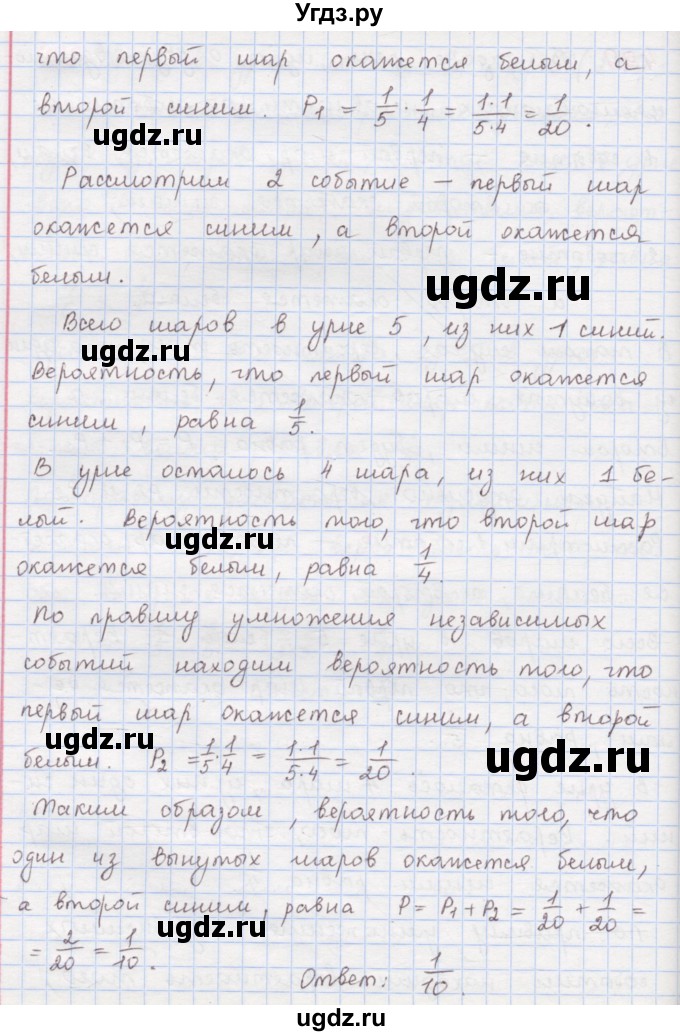 Угдз.ру
что первый шар окажется белым, а
второй синим. P₁ = 1/5 · 1/4 = 1·1/5·4 = 1/20.
ugdz.ru
Рассмотрим 2 событие – первый шар
окажется синим, а второй окажется
белым.
ugdz.ru
Всего шаров в урне 5, из них 1 синий.
ugdz.ru
Вероятность, что первый шар окажется
синим, равна 1/5.
В урне осталось 4 шара, из них 1 бе-
лый. Вероятность того, что второй шар
ugdz.ru
окажется белым, равна 1/4.
По правилу умножения независимых
событий находим вероятность того, что
первый шар окажется синим, а второй
белым. P₂ = 1/5 · 1/4 = 1·1/5·4 = 1/20.
ugdz.ru
ugdz.ru
Таким образом, вероятность того, что
один из вынутых шаров окажется белым,
а второй синим, равна P = P₁ + P₂ = 1/20 + 1/20 =
= 2/20 = 1/10.
Ответ: 1/10.
ugdz.ru
ugdz.ru